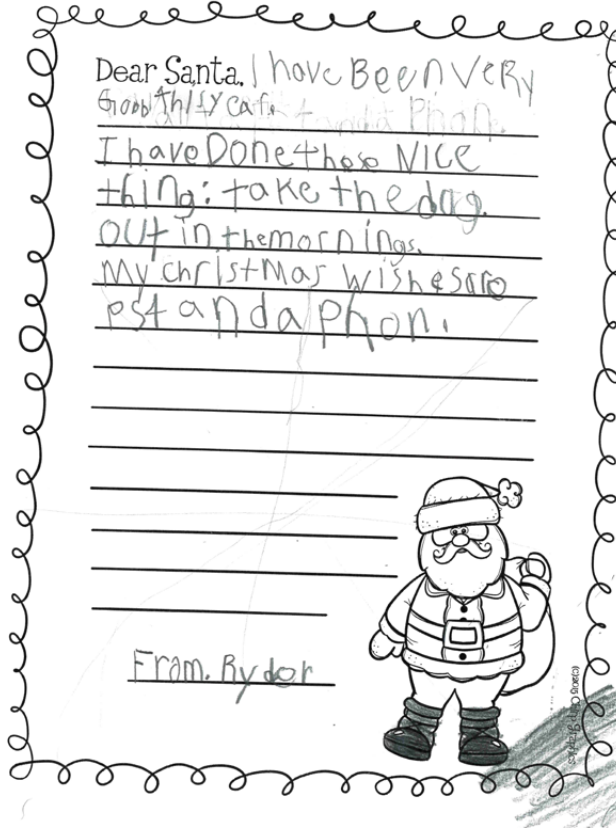 Dear Santa, I have Been VeRy
Good thity cat.
I have Done these NICE
thing: take the dog.
out in the mornings.
My christmas wishes are
ps4 and a phon.
Fram. Rydor